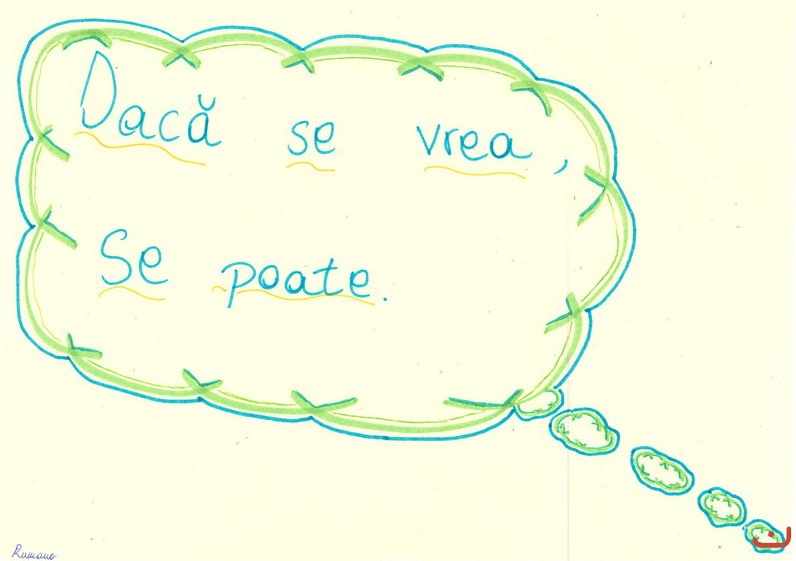 Dacă se vrea,
Se poate.
Rumano